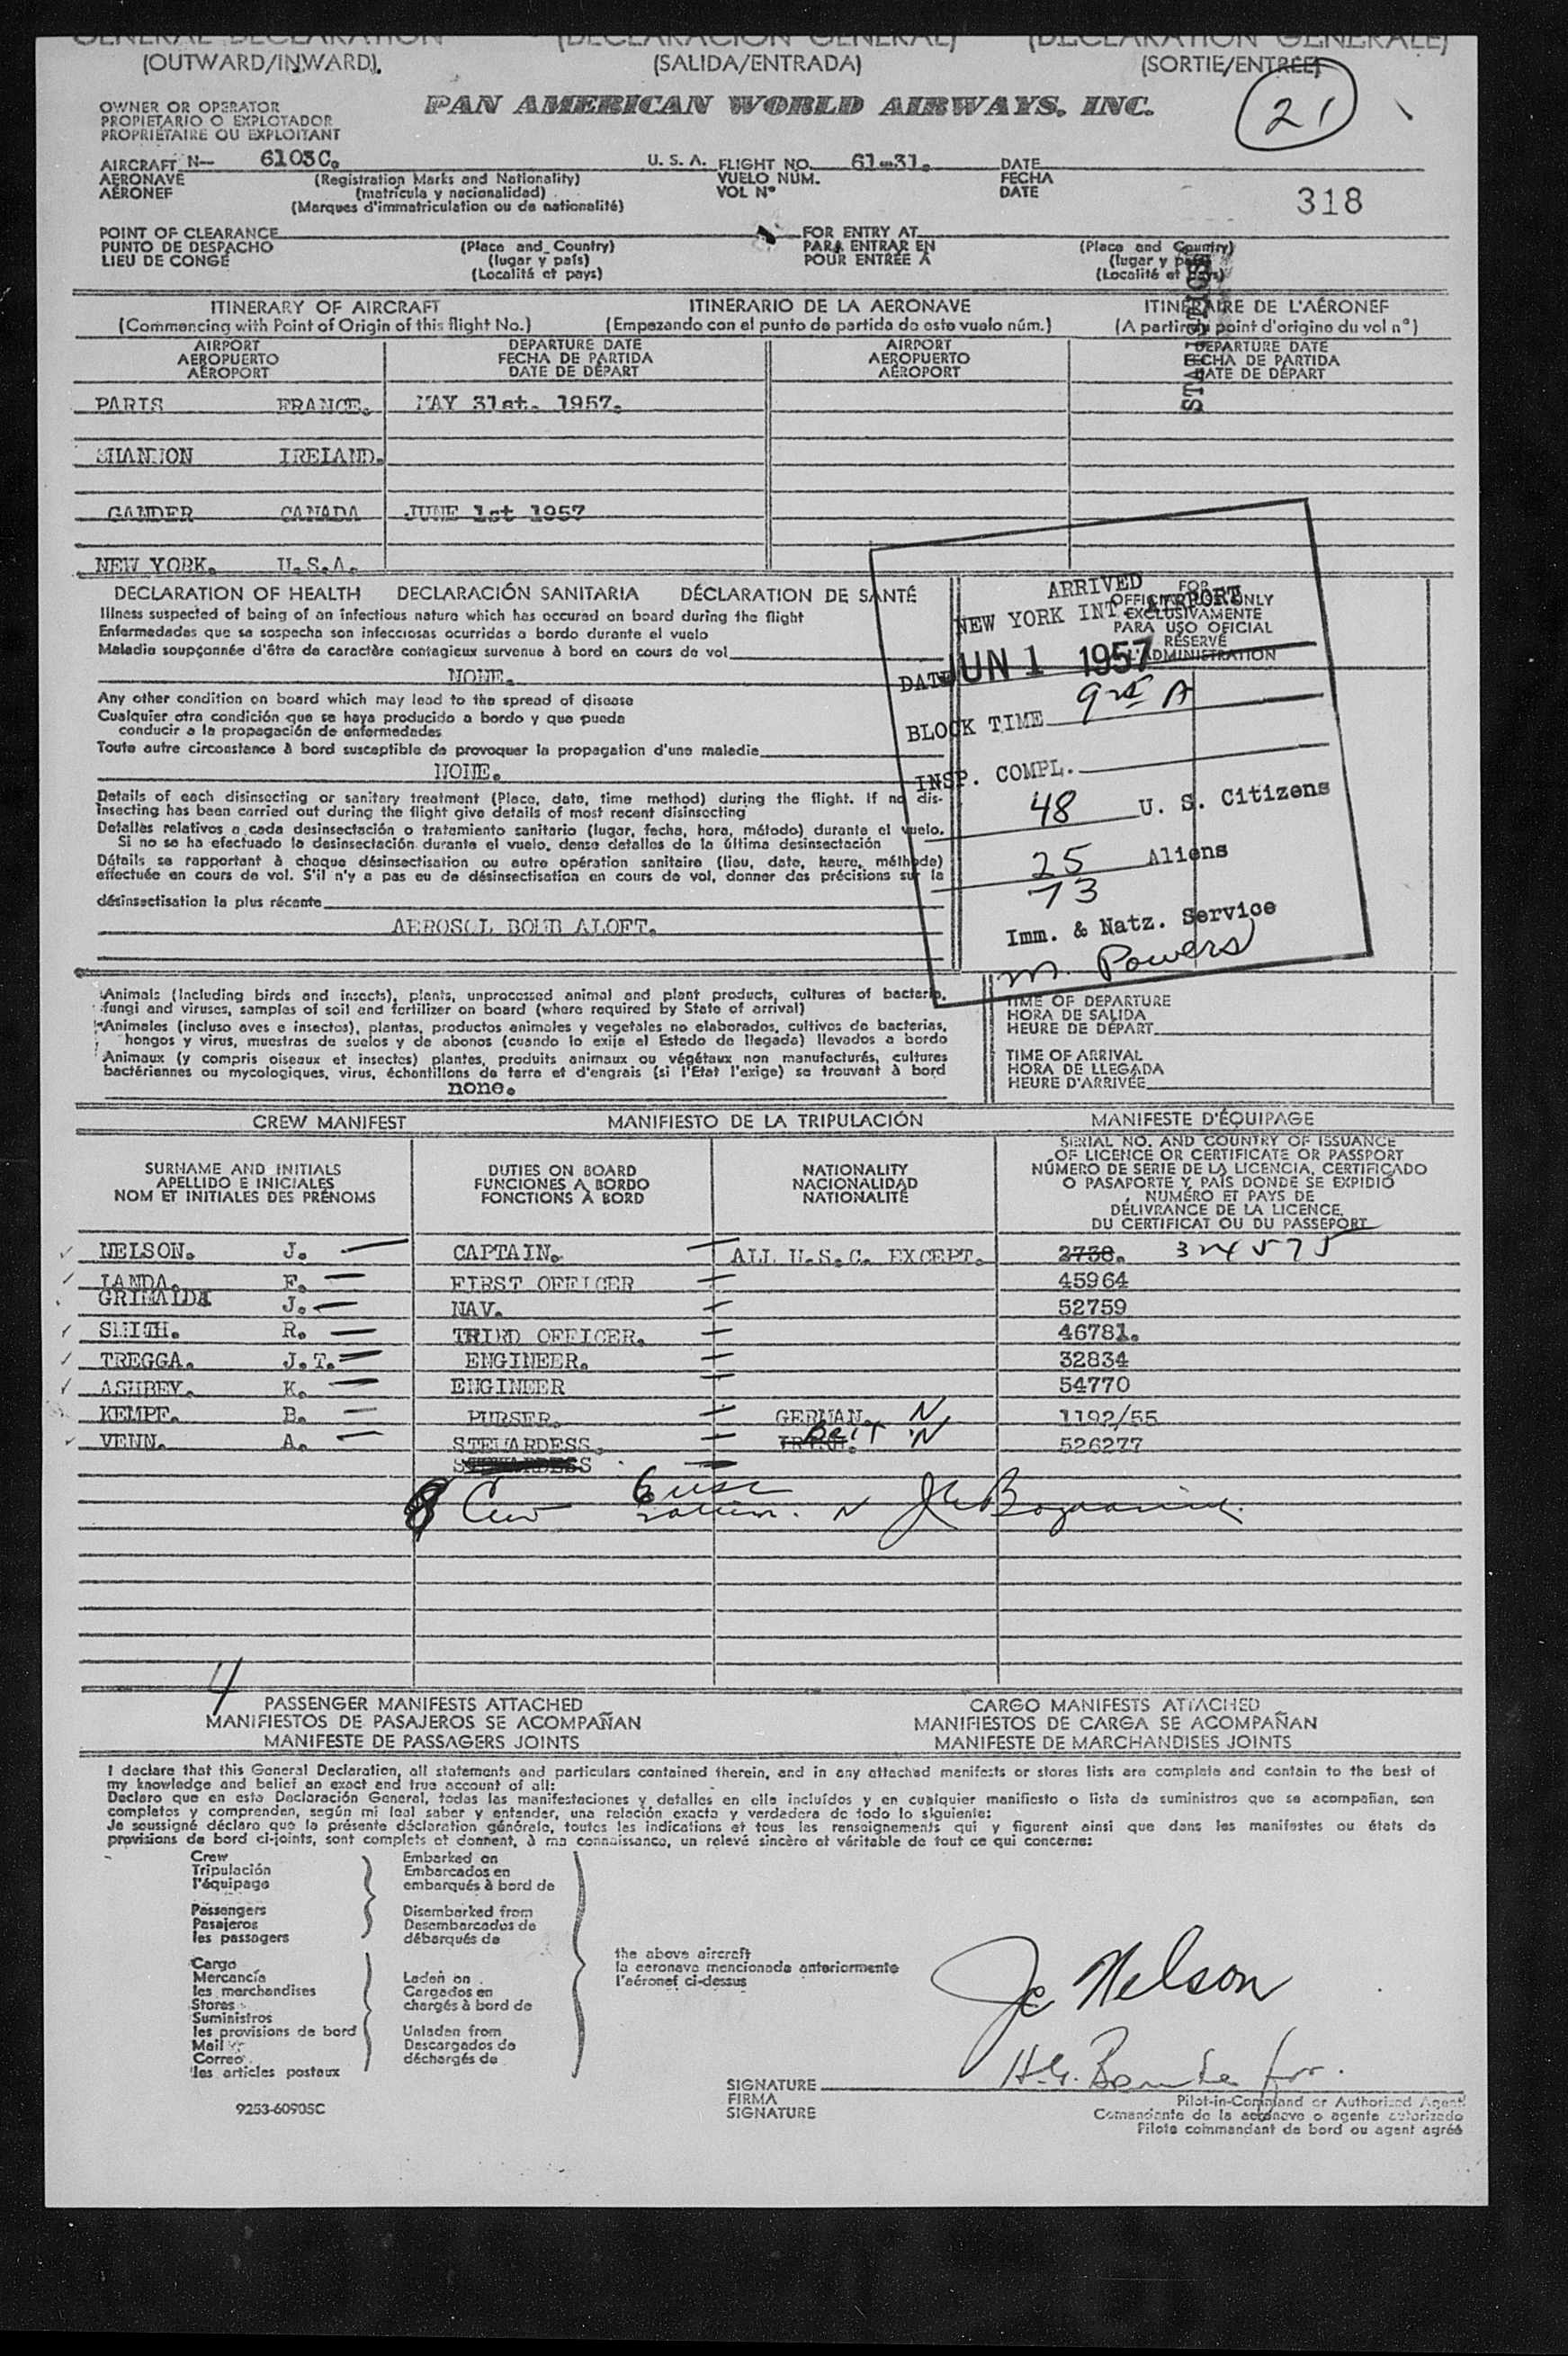 GENERAL DECLARATION (DECLARACIÓN GENERAL) (DÉCLARATION GÉNÉRALE)
(OUTWARD/INWARD). (SALIDA/ENTRADA) (SORTIE/ENTRÉE)
21
OWNER OR OPERATOR
PROPIETARIO O EXPLOTADOR
PROPRIÉTAIRE OU EXPLOITANT
PAN AMERICAN WORLD AIRWAYS, INC.
AIRCRAFT N— 6103C. U. S. A. FLIGHT NO. 61-31. DATE
AERONAVE (Registration Marks and Nationality) VUELO NÚM. FECHA
AÉRONEF (matrícula y nacionalidad) VOL Nº DATE
(Marques d'immatriculation ou de nationalité)
318
POINT OF CLEARANCE FOR ENTRY AT
PUNTO DE DESPACHO (Place and Country) PARA ENTRAR EN (Place and Country)
LIEU DE CONGÉ (lugar y país) POUR ENTRÉE À (lugar y país)
(Localité et pays) (Localité et pays)
STATISTICS
ITINERARY OF AIRCRAFT ITINERARIO DE LA AERONAVE ITINÉRAIRE DE L'AÉRONEF
(Commencing with Point of Origin of this flight No.) (Empezando con el punto de partida de este vuelo núm.) (A partir du point d'origine du vol nº)
AIRPORT DEPARTURE DATE AIRPORT DEPARTURE DATE
AEROPUERTO FECHA DE PARTIDA AEROPUERTO FECHA DE PARTIDA
AÉROPORT DATE DE DÉPART AÉROPORT DATE DE DÉPART
PARIS FRANCE. MAY 31st. 1957.
SHANNON IRELAND.
GANDER CANADA JUNE 1st 1957
NEW YORK. U.S.A.
DECLARATION OF HEALTH DECLARACIÓN SANITARIA DÉCLARATION DE SANTÉ
Illness suspected of being of an infectious nature which has occured on board during the flight
Enfermedades que se sospecha son infecciosas ocurridas a bordo durante el vuelo
Maladie soupçonnée d'être de caractère contagieux survenue à bord en cours de vol
NONE.
Any other condition on board which may lead to the spread of disease
Cualquier otra condición que se haya producido a bordo y que pueda
conducir a la propagación de enfermedades
Toute autre circonstance à bord susceptible de provoquer la propagation d'une maladie
NONE.
Details of each disinsecting or sanitary treatment (Place, date, time method) during the flight. If no dis-
insecting has been carried out during the flight give details of most recent disinsecting
Detalles relativos a cada desinsectación o tratamiento sanitario (lugar, fecha, hora, método) durante el vuelo.
Si no se ha efectuado la desinsectación durante el vuelo, dense detalles de la última desinsectación
Détails se rapportant à chaque désinsectisation ou autre opération sanitaire (lieu, date, heure, méthode)
effectuée en cours de vol. S'il n'y a pas eu de désinsectisation en cours de vol, donner des précisions sur la
désinsectisation la plus récente
AEROSOL BOMB ALOFT.
FOR
OFFICIAL USE ONLY
EXCLUSIVAMENTE
PARA USO OFICIAL
RÉSERVÉ
L'ADMINISTRATION
ARRIVED
NEW YORK INT AIRPORT
DATE JUN 1 1957
BLOCK TIME A
INSP. COMPL.
48 U. S. Citizens
25 Aliens
73
Imm. & Natz. Service
M. Powers
Animals (Including birds and insects), plants, unprocessed animal and plant products, cultures of bacteria,
fungi and viruses, samples of soil and fertilizer on board (where required by State of arrival)
Animales (incluso aves e insectos), plantas, productos animales y vegetales no elaborados, cultivos de bacterias,
hongos y virus, muestras de suelos y de abonos (cuando lo exija el Estado de llegada) llevados a bordo
Animaux (y compris oiseaux et insectes) plantes, produits animaux ou végétaux non manufacturés, cultures
bactériennes ou mycologiques, virus, échantillons de terre et d'engrais (si l'Etat l'exige) se trouvant à bord
none.
TIME OF DEPARTURE
HORA DE SALIDA
HEURE DE DÉPART
TIME OF ARRIVAL
HORA DE LLEGADA
HEURE D'ARRIVÉE
CREW MANIFEST MANIFIESTO DE LA TRIPULACIÓN MANIFESTE D'ÉQUIPAGE
SURNAME AND INITIALS
APELLIDO E INICIALES
NOM ET INITIALES DES PRÉNOMS
DUTIES ON BOARD
FUNCIONES A BORDO
FONCTIONS À BORD
NATIONALITY
NACIONALIDAD
NATIONALITÉ
SERIAL NO. AND COUNTRY OF ISSUANCE
OF LICENCE OR CERTIFICATE OR PASSPORT
NÚMERO DE SERIE DE LA LICENCIA, CERTIFICADO
O PASAPORTE Y PAÍS DONDE SE EXPIDIÓ
NUMÉRO ET PAYS DE
DÉLIVRANCE DE LA LICENCE,
DU CERTIFICAT OU DU PASSEPORT
NELSON. J. CAPTAIN. ALL U.S.C. EXCEPT. 2738. 324575
LANDA. F. FIRST OFFICER 45964
GRIMALDI J. NAV. 52759
SMITH. R. THIRD OFFICER. 46781.
TREGGA. J.T. ENGINEER. 32834
ASHBEY. K. ENGINEER 54770
KEMPF. B. PURSER. GERMAN. N 1192/55
VENN. A. STEWARDESS. IRISH. Brit N 526277
STEWARDESS
8 Crew 6 usc
N
4
PASSENGER MANIFESTS ATTACHED CARGO MANIFESTS ATTACHED
MANIFIESTOS DE PASAJEROS SE ACOMPAÑAN MANIFIESTOS DE CARGA SE ACOMPAÑAN
MANIFESTE DE PASSAGERS JOINTS MANIFESTE DE MARCHANDISES JOINTS
I declare that this General Declaration, all statements and particulars contained therein, and in any attached manifests or stores lists are complete and contain to the best of
my knowledge and belief an exact and true account of all:
Declaro que en esta Declaración General, todas las manifestaciones y detalles en ella incluídos y en cualquier manifiesto o lista de suministros que se acompañan, son
completos y comprenden, según mi leal saber y entender, una relación exacta y verdadera de todo lo siguiente:
Je soussigné déclare que la présente déclaration générale, toutes les indications et tous les renseignements qui y figurent ainsi que dans les manifestes ou états de
provisions de bord ci-joints, sont complets et donnent, à ma connaissance, un relevé sincère et véritable de tout ce qui concerne:
Crew Embarked on
Tripulación Embarcados en
l'équipage embarqués à bord de
Passengers Disembarked from
Pasajeros Desembarcados de
les passagers débarqués de
the above aircraft
la aeronave mencionada anteriormente
l'aéronef ci-dessus
Cargo
Mercancía Laden on
les marchandises Cargados en
Stores chargés à bord de
Suministros
les provisions de bord Unladen from
Mail Descargados de
Correo déchargés de
les articles postaux
Jc Nelson
H.G. for.
SIGNATURE
FIRMA
SIGNATURE
Pilot-in-Command or Authorized Agent
Comandante de la aeronave o agente autorizado
Pilote commandant de bord ou agent agréé
9253-60905C